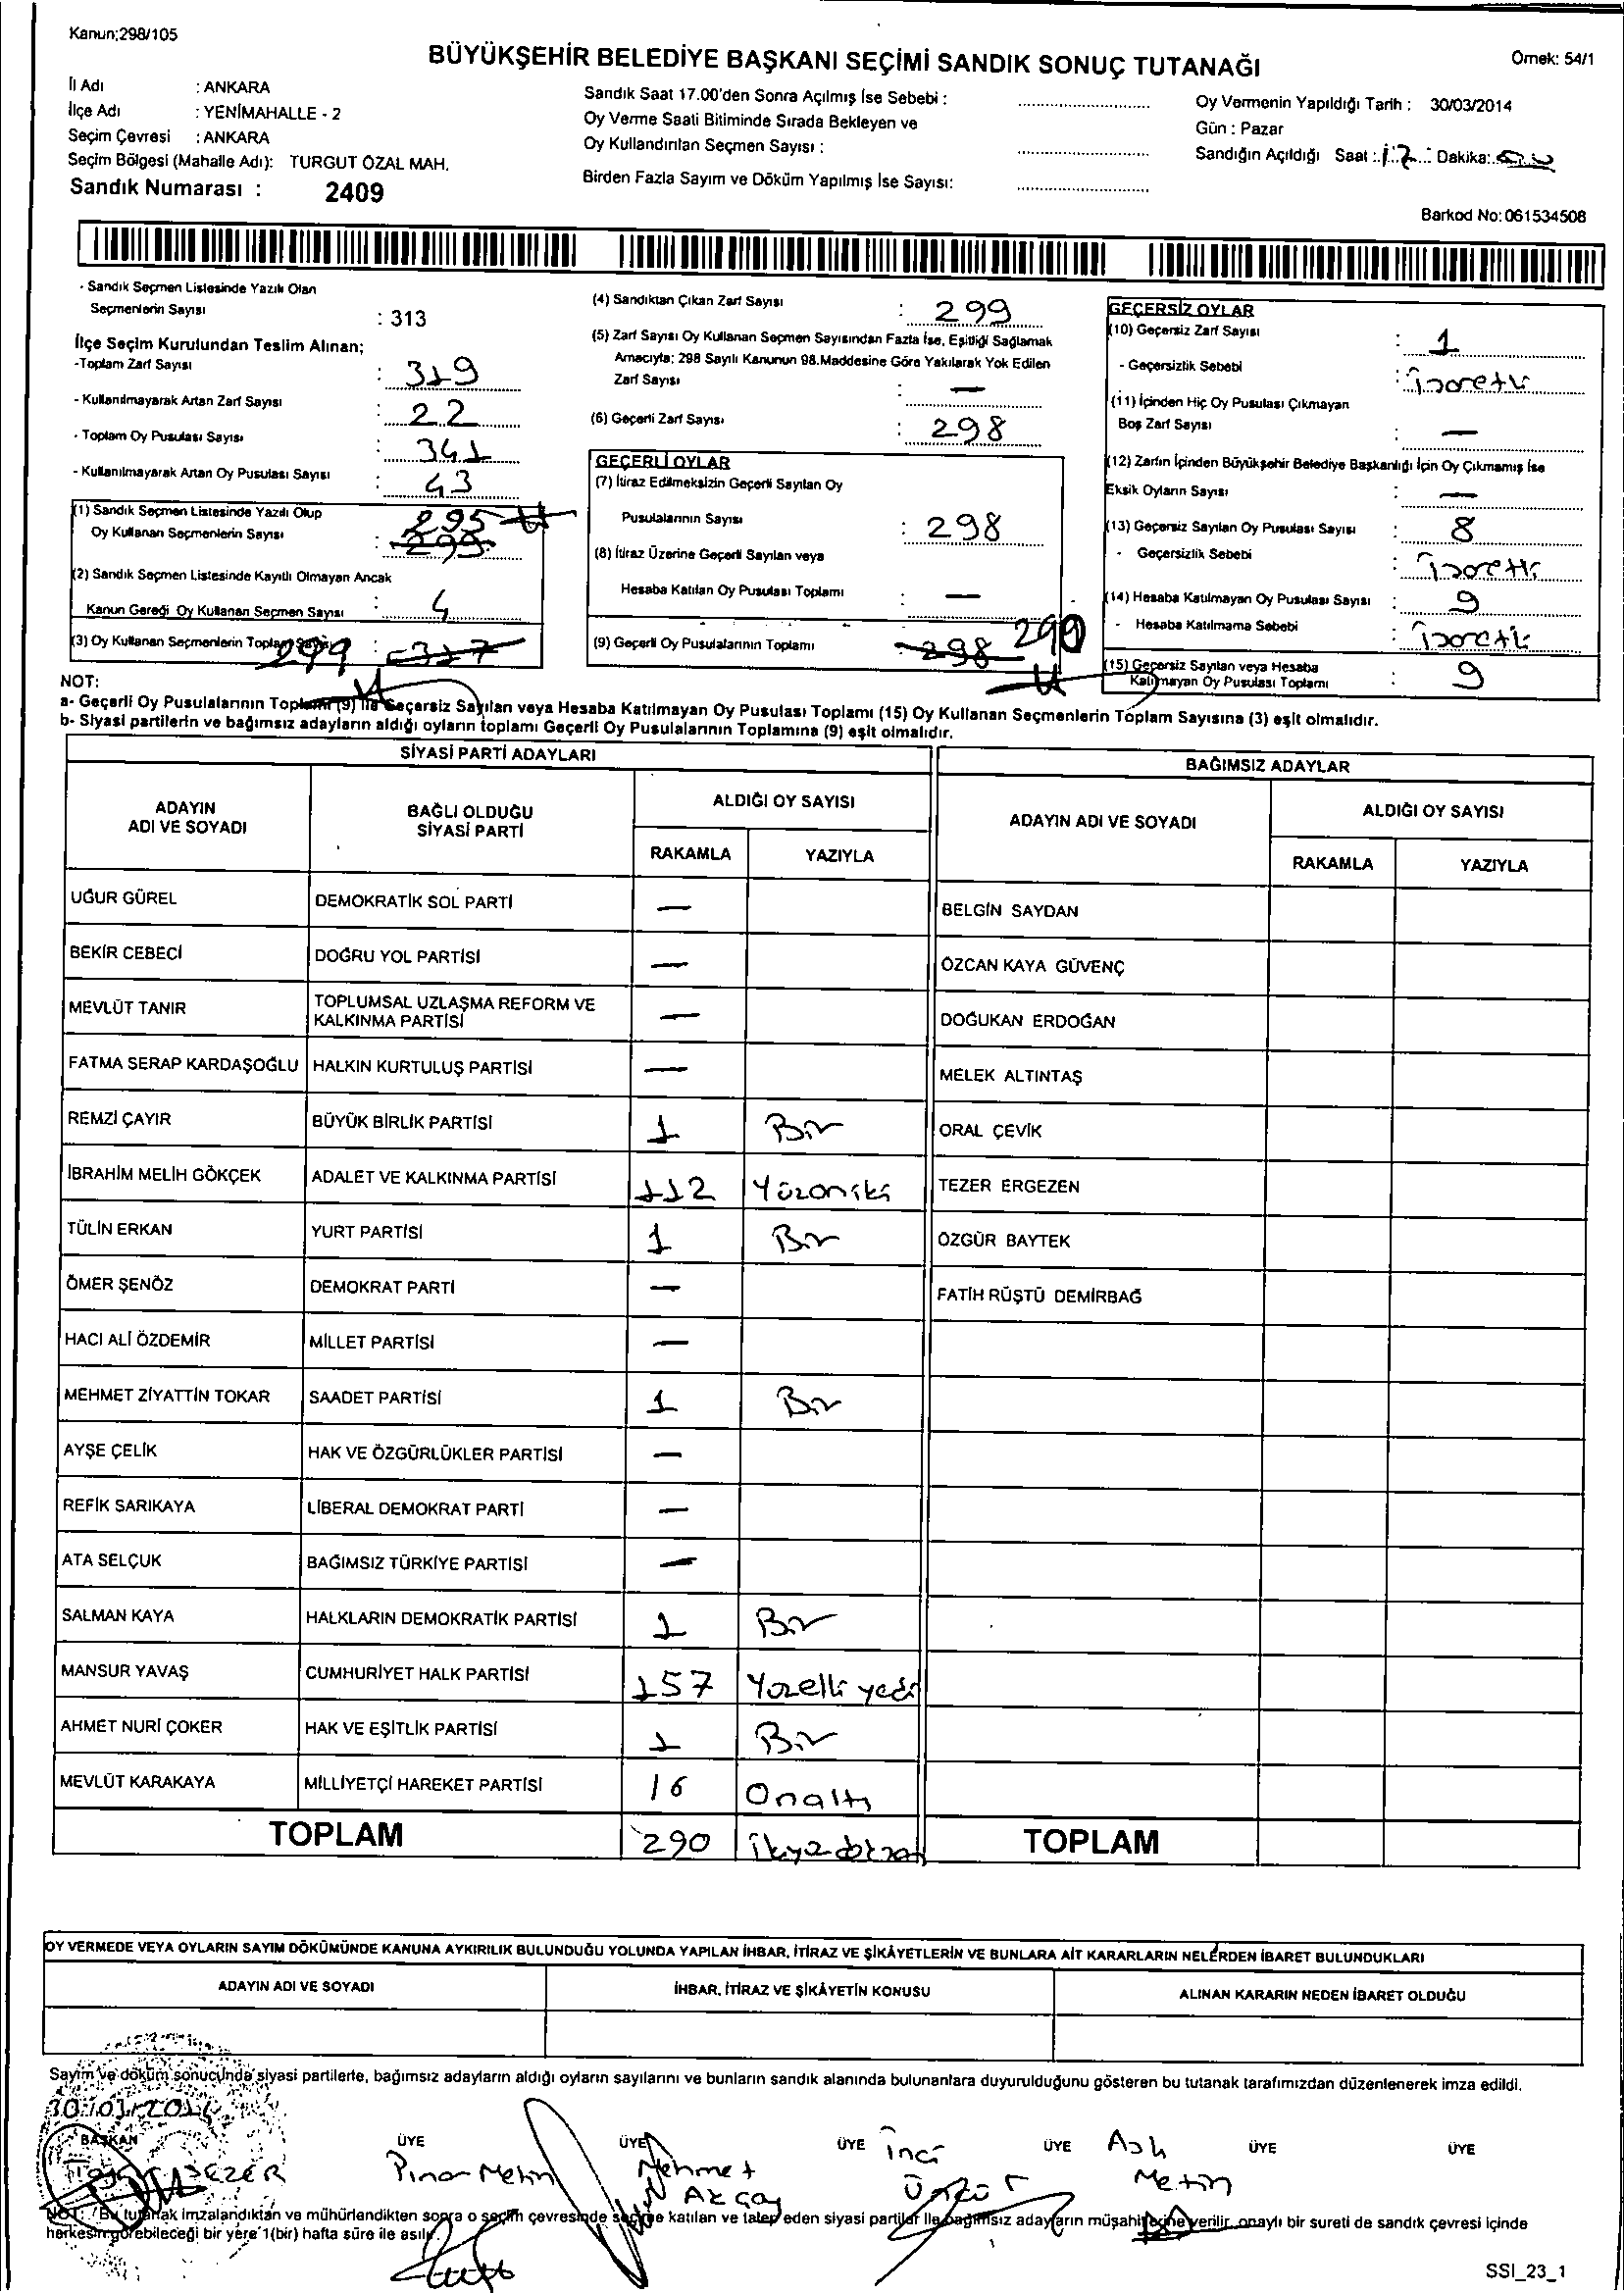 Kanun;298/105
BÜYÜKŞEHİR BELEDİYE BAŞKANI SEÇİMİ SANDIK SONUÇ TUTANAĞI
Örnek: 54/1
İl Adı : ANKARA
İlçe Adı : YENİMAHALLE - 2
Seçim Çevresi : ANKARA
Seçim Bölgesi (Mahalle Adı): TURGUT ÖZAL MAH.
Sandık Numarası : 2409
Sandık Saat 17.00'den Sonra Açılmış İse Sebebi :
Oy Verme Saati Bitiminde Sırada Bekleyen ve
Oy Kullandırılan Seçmen Sayısı :
Birden Fazla Sayım ve Döküm Yapılmış İse Sayısı:
Oy Vermenin Yapıldığı Tarih : 30/03/2014
Gün : Pazar
Sandığın Açıldığı Saat : 17 Dakika:
Barkod No: 061534508
- Sandık Seçmen Listesinde Yazılı Olan
Seçmenlerin Sayısı : 313
İlçe Seçim Kurulundan Teslim Alınan;
-Toplam Zarf Sayısı : 319
- Kullanılmayarak Artan Zarf Sayısı : 22
- Toplam Oy Pusulası Sayısı : 341
- Kullanılmayarak Artan Oy Pusulası Sayısı : 43
(1) Sandık Seçmen Listesinde Yazılı Olup 295
Oy Kullanan Seçmenlerin Sayısı : 299
(2) Sandık Seçmen Listesinde Kayıtlı Olmayan Ancak
Kanun Gereği Oy Kullanan Seçmen Sayısı : 4
(3) Oy Kullanan Seçmenlerin Toplam Sayısı 299 : 317
(4) Sandıktan Çıkan Zarf Sayısı : 299
(5) Zarf Sayısı Oy Kullanan Seçmen Sayısından Fazla İse, Eşitliği Sağlamak
Amacıyla; 298 Sayılı Kanunun 98.Maddesine Göre Yakılarak Yok Edilen
Zarf Sayısı : —
(6) Geçerli Zarf Sayısı : 298
GEÇERLİ OYLAR
(7) İtiraz Edilmeksizin Geçerli Sayılan Oy
Pusulalarının Sayısı : 298
(8) İtiraz Üzerine Geçerli Sayılan veya
Hesaba Katılan Oy Pusulası Toplamı : —
(9) Geçerli Oy Pusulalarının Toplamı : 298 290
GEÇERSİZ OYLAR
(10) Geçersiz Zarf Sayısı : 1
- Geçersizlik Sebebi : İşaretli
(11) İçinden Hiç Oy Pusulası Çıkmayan
Boş Zarf Sayısı : —
(12) Zarfın İçinden Büyükşehir Belediye Başkanlığı İçin Oy Çıkmamış İse
Eksik Oyların Sayısı : —
(13) Geçersiz Sayılan Oy Pusulası Sayısı : 8
- Geçersizlik Sebebi : İşaretli
(14) Hesaba Katılmayan Oy Pusulası Sayısı : 9
- Hesaba Katılmama Sebebi : İşaretli
(15) Geçersiz Sayılan veya Hesaba
Katılmayan Oy Pusulası Toplamı : 9
NOT:
a- Geçerli Oy Pusulalarının Toplamı (9) ile Geçersiz Sayılan veya Hesaba Katılmayan Oy Pusulası Toplamı (15) Oy Kullanan Seçmenlerin Toplam Sayısına (3) eşit olmalıdır.
b- Siyasi partilerin ve bağımsız adayların aldığı oyların toplamı Geçerli Oy Pusulalarının Toplamına (9) eşit olmalıdır.
SİYASİ PARTİ ADAYLARI BAĞIMSIZ ADAYLAR
ADAYIN ADI VE SOYADI BAĞLI OLDUĞU SİYASİ PARTİ ALDIĞI OY SAYISI ADAYIN ADI VE SOYADI ALDIĞI OY SAYISI
RAKAMLA YAZIYLA RAKAMLA YAZIYLA
UĞUR GÜREL DEMOKRATİK SOL PARTİ — BELGİN SAYDAN
BEKİR CEBECİ DOĞRU YOL PARTİSİ — ÖZCAN KAYA GÜVENÇ
MEVLÜT TANIR TOPLUMSAL UZLAŞMA REFORM VE KALKINMA PARTİSİ — DOĞUKAN ERDOĞAN
FATMA SERAP KARDAŞOĞLU HALKIN KURTULUŞ PARTİSİ — MELEK ALTINTAŞ
REMZİ ÇAYIR BÜYÜK BİRLİK PARTİSİ 1 Bir ORAL ÇEVİK
İBRAHİM MELİH GÖKÇEK ADALET VE KALKINMA PARTİSİ 112 Yüzoniki TEZER ERGEZEN
TÜLİN ERKAN YURT PARTİSİ 1 Bir ÖZGÜR BAYTEK
ÖMER ŞENÖZ DEMOKRAT PARTİ — FATİH RÜŞTÜ DEMİRBAĞ
HACI ALİ ÖZDEMİR MİLLET PARTİSİ —
MEHMET ZİYATTİN TOKAR SAADET PARTİSİ 1 Bir
AYŞE ÇELİK HAK VE ÖZGÜRLÜKLER PARTİSİ —
REFİK SARIKAYA LİBERAL DEMOKRAT PARTİ —
ATA SELÇUK BAĞIMSIZ TÜRKİYE PARTİSİ —
SALMAN KAYA HALKLARIN DEMOKRATİK PARTİSİ 1 Bir
MANSUR YAVAŞ CUMHURİYET HALK PARTİSİ 157 Yüzelli yedi
AHMET NURİ ÇOKER HAK VE EŞİTLİK PARTİSİ 1 Bir
MEVLÜT KARAKAYA MİLLİYETÇİ HAREKET PARTİSİ 16 Onaltı
TOPLAM 290 TOPLAM
OY VERMEDE VEYA OYLARIN SAYIM DÖKÜMÜNDE KANUNA AYKIRILIK BULUNDUĞU YOLUNDA YAPILAN İHBAR, İTİRAZ VE ŞİKÂYETLERİN VE BUNLARA AİT KARARLARIN NELERDEN İBARET BULUNDUKLARI
ADAYIN ADI VE SOYADI İHBAR, İTİRAZ VE ŞİKÂYETİN KONUSU ALINAN KARARIN NEDEN İBARET OLDUĞU
Sayım ve döküm sonucunda siyasi partilerle, bağımsız adayların aldığı oyların sayılarını ve bunların sandık alanında bulunanlara duyurulduğunu gösteren bu tutanak tarafımızdan düzenlenerek imza edildi.
30/03/2014
BAŞKAN ÜYE ÜYE ÜYE ÜYE ÜYE ÜYE
Pınar Metin Mehmet Akçay İnci Aslı Metin
NOT: Bu tutanak imzalandıktan ve mühürlendikten sonra o seçim çevresinde seçime katılan ve talep eden siyasi partiler ile bağımsız adayların müşahitlerine verilir, onaylı bir sureti de sandık çevresi içinde
herkesin görebileceği bir yere 1(bir) hafta süre ile asılır.
SSI_23_1